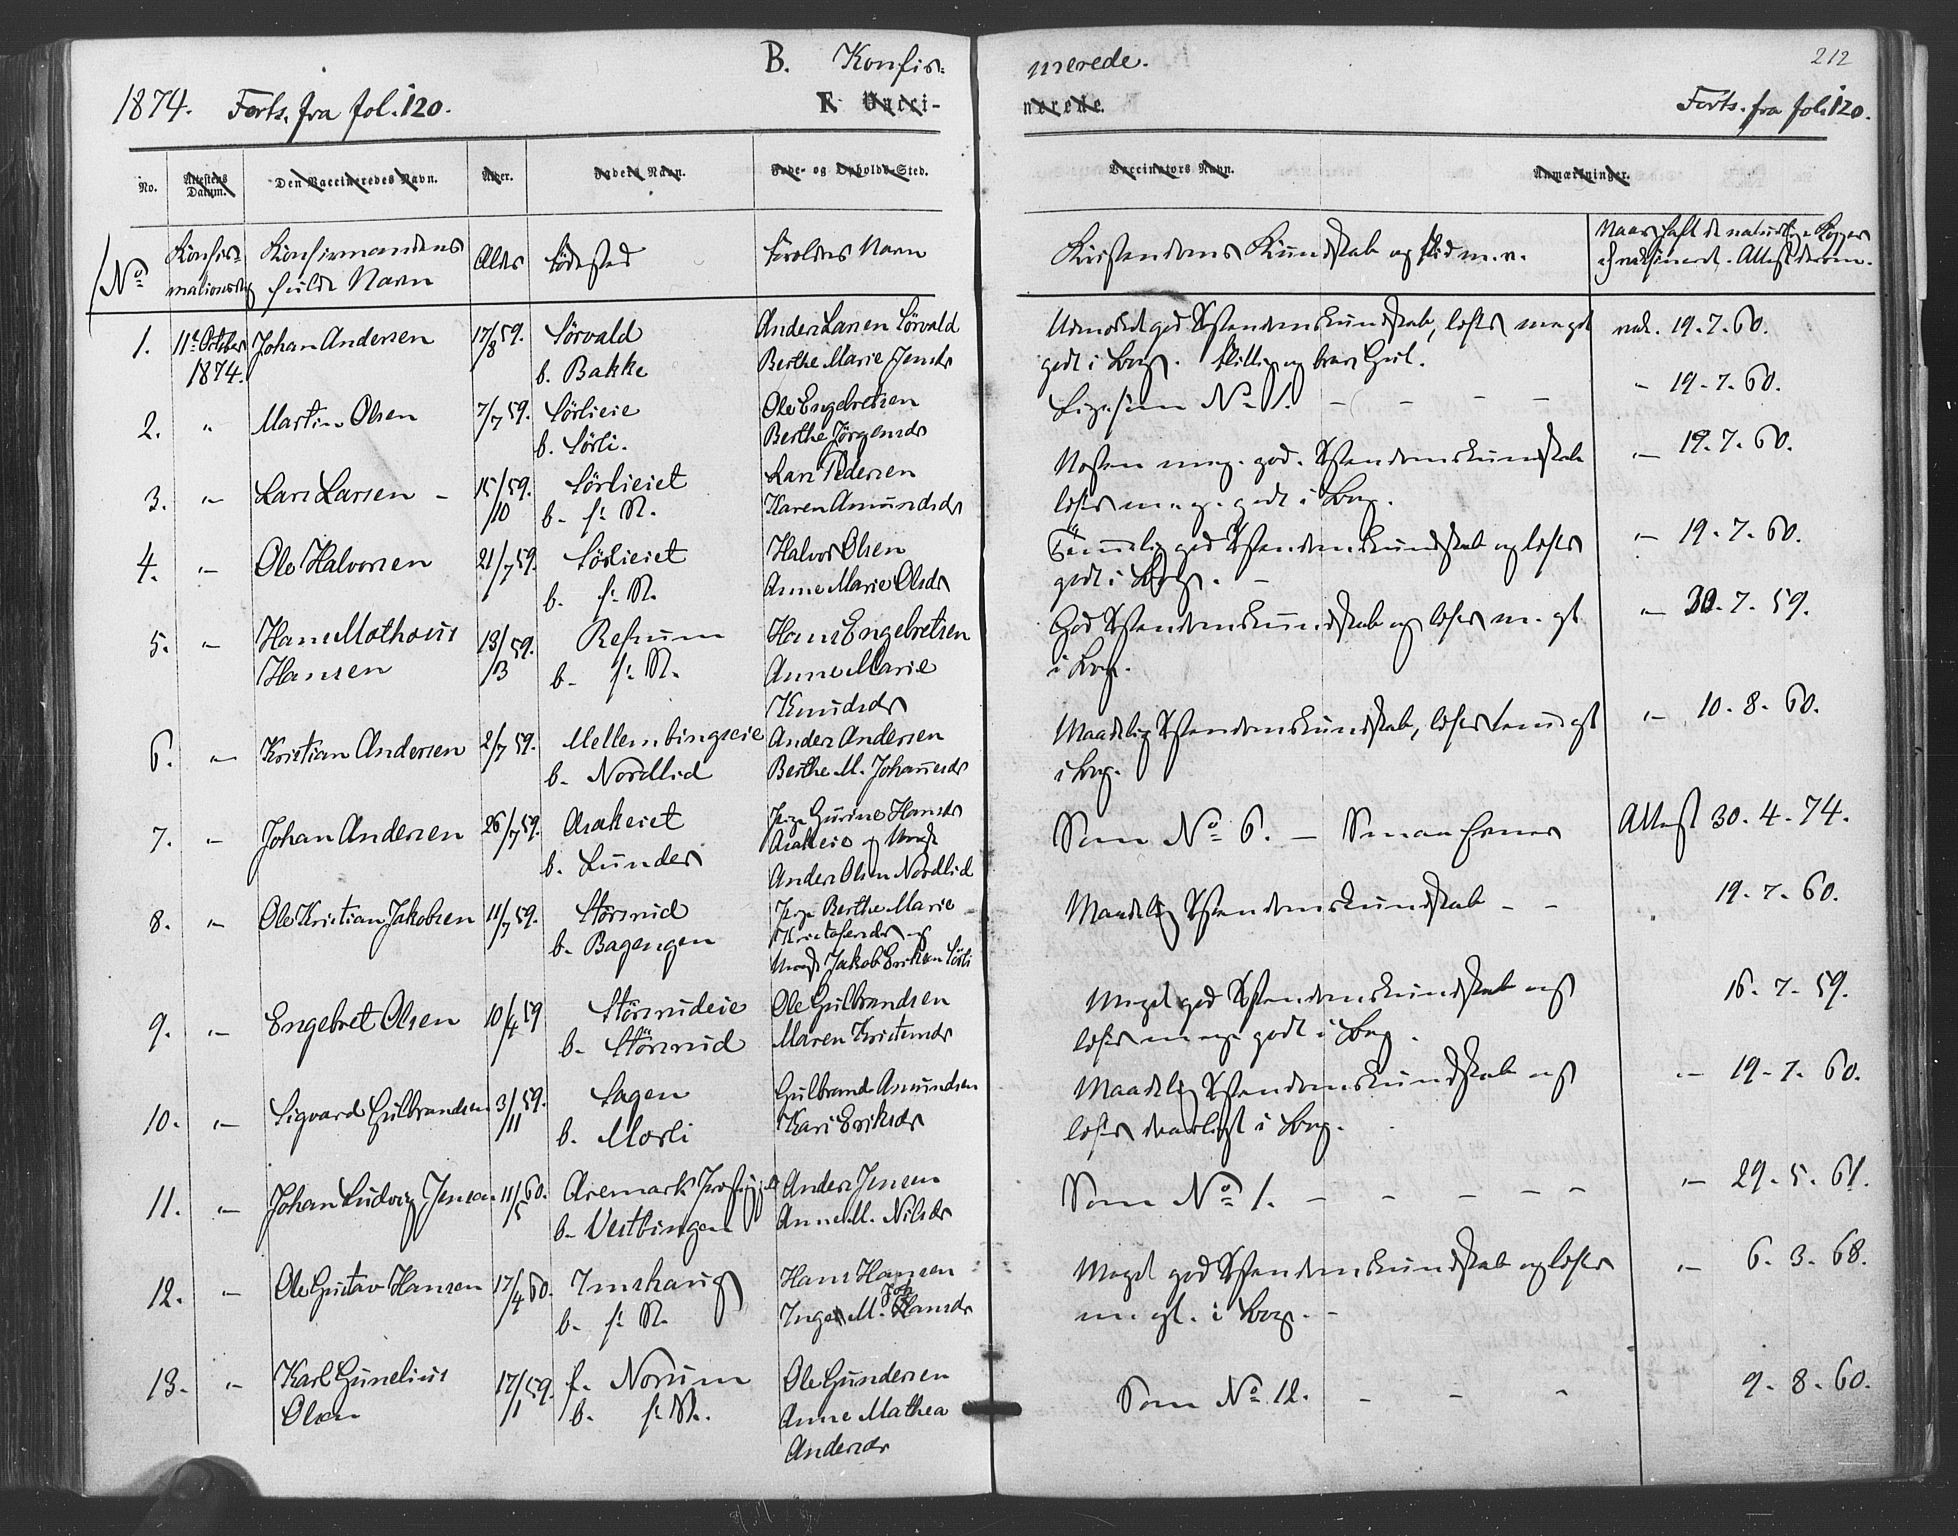 B. Konfir-
merede.
212
1874. Forts. fra fol. 120.
F. Vacci-
nerede.
Forts. fra fol. 120.
No.
Attestens Datum.
Den Vaccineredes Navn.
Alder.
Fode- og Opholds-Sted.
Vaccinators Navn.
Anmærkninger.
No
Konfir-
mationsdag
Konfirmandens
fulde Navn
Alder
Födested
Foreldres Navn
Kristendoms Kundskab og Flid m. v.
Naar haft de naturlige Kopper
Attest derom.
1. 11te October 1874. Johan Andersen 17/8 59. Sörvald b. Bakke
Anders Larsen Sörvald
Berthe Marie Jensdr
Udmerket god Kristendomskundskab, læser meget
godt i Bog. Flittig og brav Gut.
vak. 19. 7. 60.
2. " Martin Olsen 7/7 59. Sörlieie b. Sörli.
Ole Engebretsen
Berthe Jörgensdr
Ligesom No 1. - - - -
" 19. 7. 60.
3. " Lars Larsen - 15/10 59. Sörlieiet b. f. N.
Lars Pedersen
Karen Amundsdr
Næsten meg. god. Kristendomskundskab
læser meg. godt i Bog.
" 19. 7. 60.
4. " Ole Halvorsen 21/7 59. Sörlieiet b. f. N.
Halvor Olsen
Anne Marie Olsdr
Temmelig god Kristendomskundskab og læser
godt i Bog. -
" 19. 7. 60.
5. " Hans Mathæus Hansen 13/3 59. Refsum b. f. N.
Hans Engebretsen
Anne Marie
Knudsdr
God Kristendomskundskab og læser m. gt
i Bog.
" 30. 7. 59.
6. " Kristian Andersen 2/7 59. Mellembingseie b. Nordlid
Anders Andersen
Berthe M. Johannesdr
Maadelig Kristendomskundskab, læser temmgt
i Bog.
" 10. 8. 60.
7. " Johan Andersen 26/7 59. Asakeiet b. Lunder
Pige Gurine Hansdr
Asakeie og Ungk
Anders Olsen Nordlid
Som No 6. -
Attest 30. 4. 74.
8. " Ole Kristian Jakobsen 11/7 59. Störsrud b. Bagengen
Pige Berthe Marie
Kristofersdr og
Ungk Jakob Eriksen Sörli
Maadelig Kristendomskundskab - -
19. 7. 60.
9. " Engebret Olsen 10/4 59 Störsrudeie b. Störsrud
Ole Gulbrandsen
Maren Kristensdr
Meget god Kristendomskundskab og
læser meg. godt i Bog.
16. 7. 59.
10. " Sigvard Gulbrandsen 3/11 59. Sagen b. Morli
Gulbrand Amundsen
Kari Eriksdr
Maadelig Kristendomskundskab og
læser daarligt i Bog.
" 19. 7. 60.
11. " Johan Ludvig Jensen 11/5 60. Aremark b. Vestbingen
Anders Jensen
Anne M. Nilsdr
Som No 1. - - - - -
" 29. 5. 61.
12. " Ole Gustav Hansen 17/4 60. Imshaug b. f. N.
Hans Hansen
Inger M. Hansdr
Meget god Kristendomskundskab og læser
m. gt. i Bog. -
" 6. 3. 68.
13. " Karl Gunelius Olsen 17/1 59. f. Norum b. f. N.
Ole Gundersen
Anne Mathea
Andersdr
Som No 12. - - -
9. 8. 60.